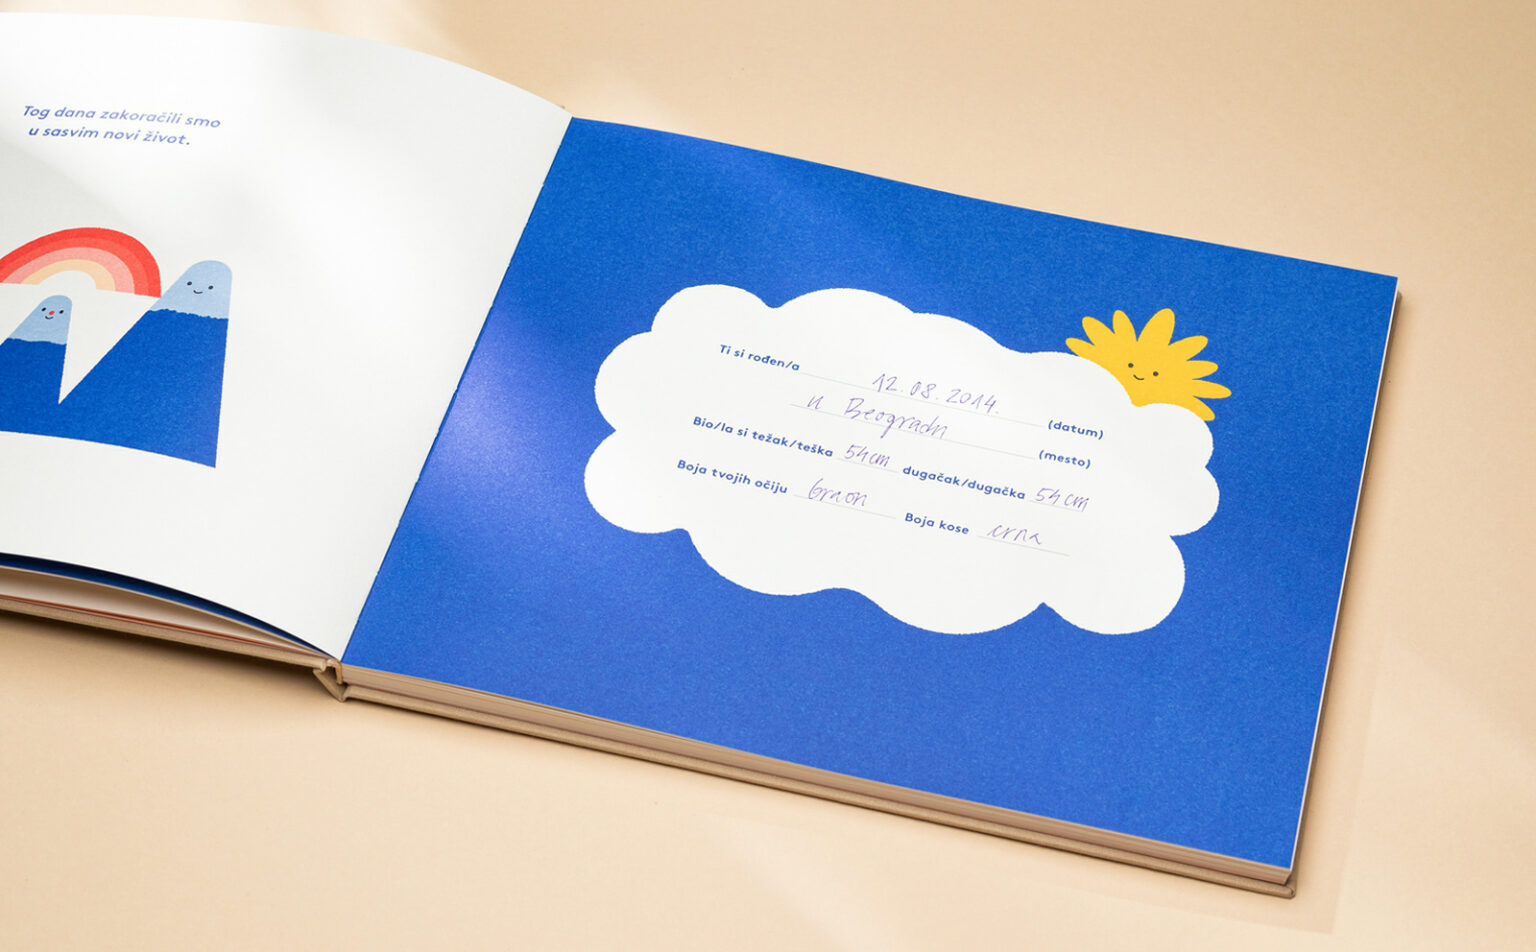 Tog dana zakoračili smo
u sasvim novi život.
Ti si rođen/a 12.08.2014. (datum)
u Beogradu (mesto)
Bio/la si težak/teška 54cm dugačak/dugačka 54cm
Boja tvojih očiju braon Boja kose crna